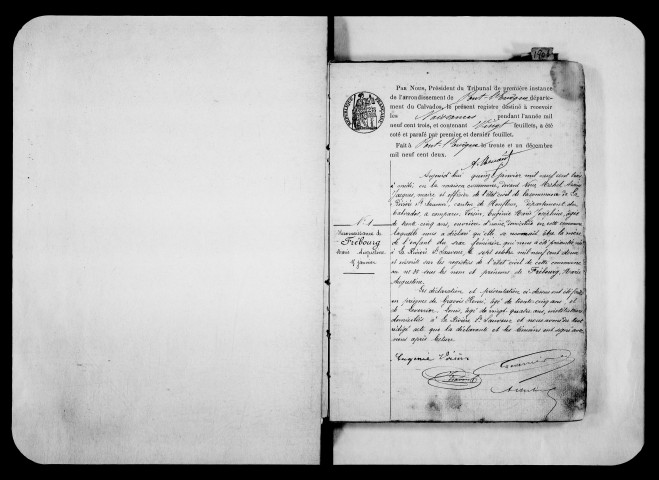 1903
PAR NOUS, Président du Tribunal de première instance
de l'arrondissement de Pont-l'Evêque départe-
ment du Calvados, le présent registre destiné à recevoir
les Naissances pendant l'année mil
neuf cent trois, et contenant Vingt feuillets, a été
coté et parafé par premier et dernier feuillet.
Fait à Pont-l'Evêque le trente et un décembre
mil neuf cent deux.
Aujourd'hui quinze janvier mil neuf cent trois
à midi en la maison commune, devant Nous
Jacques, maire et officier de l'état civil de la commune de La
Rivière St Sauveur, canton de Honfleur, département du
Calvados, a comparu Voisin, Eugénie Marie Joséphine, âgée
de trente cinq ans, domiciliée en cette commune
laquelle nous a déclaré qu'elle se reconnait être la mère
de l'enfant du sexe féminin qui nous a été présenté né
à La Rivière St Sauveur le sept octobre mil neuf cent deux
et inscrit sur les registres de l'état civil de cette commune
sous les nom et prénoms de Fribourg, Marie
Augustine.
N° 1
Reconnaissance de
Fribourg
Marie Augustine
janvier
Les déclaration et présentation ci-dessus ont été faites
en présence de Henri, âgé de trente cinq ans et
de Louis, âgé de vingt quatre ans, instituteurs
domiciliés à la Rivière St Sauveur et nous avons de tout
rédigé acte que la déclarante et les témoins ont signé avec
nous après lecture
Eugénie Voisin